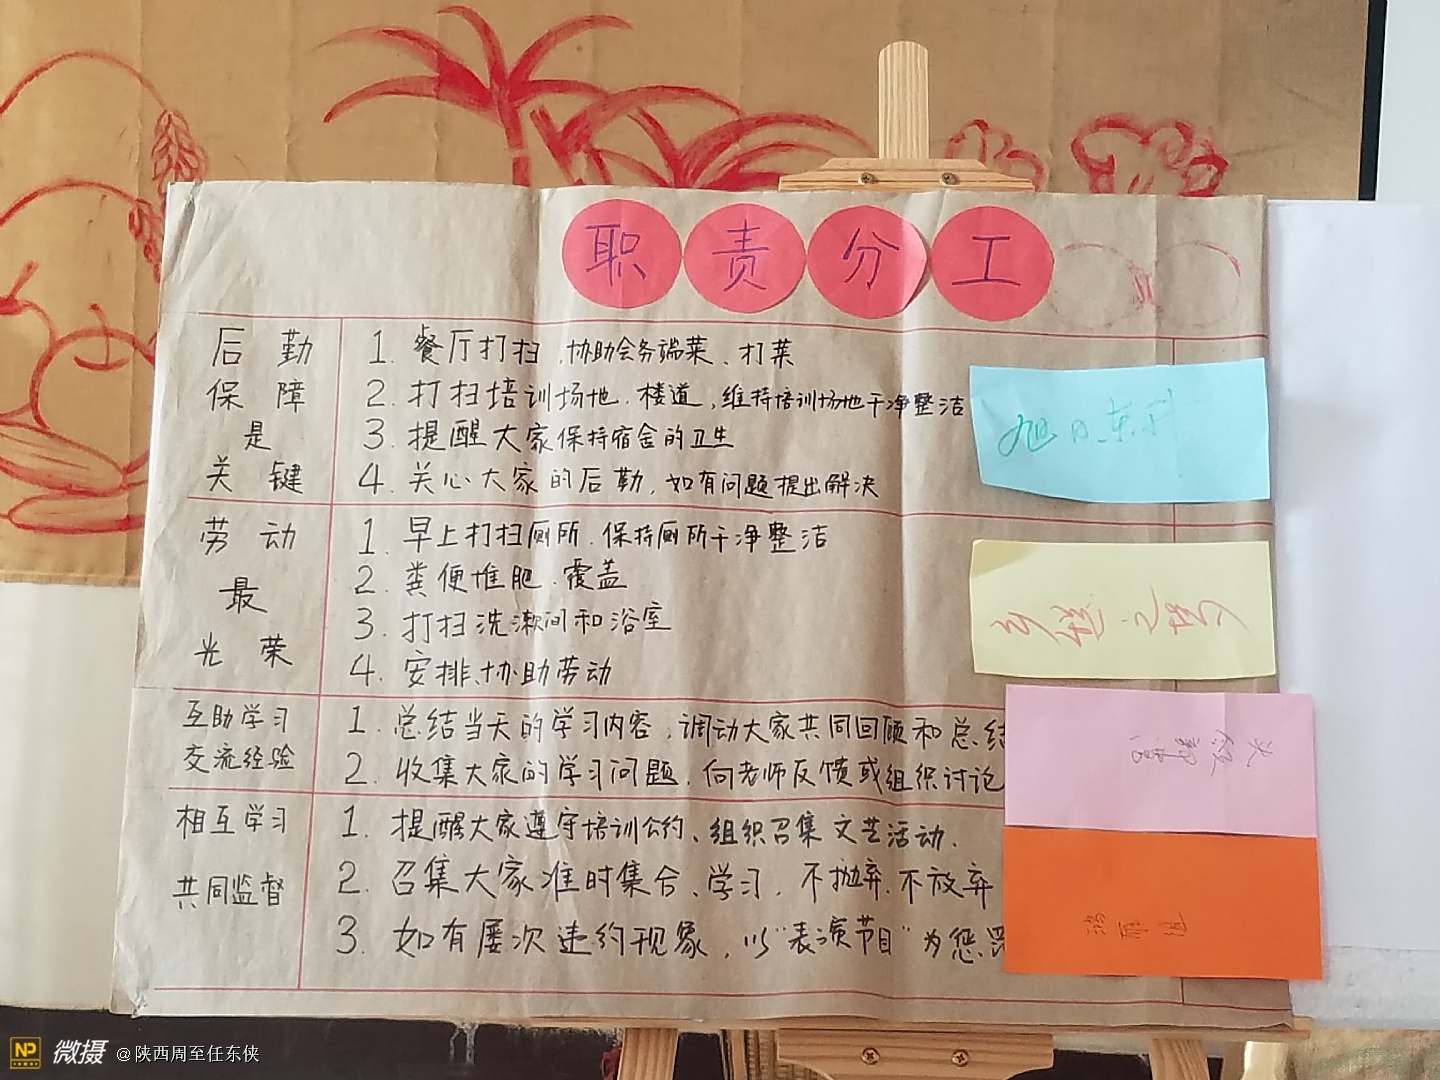 职责分工
后勤
保障
是
关键
1. 餐厅打扫,协助会务端菜、打菜
2. 打扫培训场地、楼道,维持培训场地干净整洁
3. 提醒大家保持宿舍的卫生
4. 关心大家的后勤,如有问题提出解决
旭日东升
劳动
最
光荣
1. 早上打扫厕所、保持厕所干净整洁
2. 粪便堆肥、覆盖
3. 打扫洗漱间和浴室
4. 安排、协助劳动
互助学习
交流经验
1. 总结当天的学习内容,调动大家共同回顾和总结
2. 收集大家的学习问题,向老师反馈或组织讨论
相互学习
共同监督
1. 提醒大家遵守培训公约、组织召集文艺活动.
2. 召集大家准时集合、学习,不抛弃、不放弃
3. 如有屡次违约现象,以"表演节目"为惩罚
鸿雁组
NP 微摄 @陕西周至任东侠